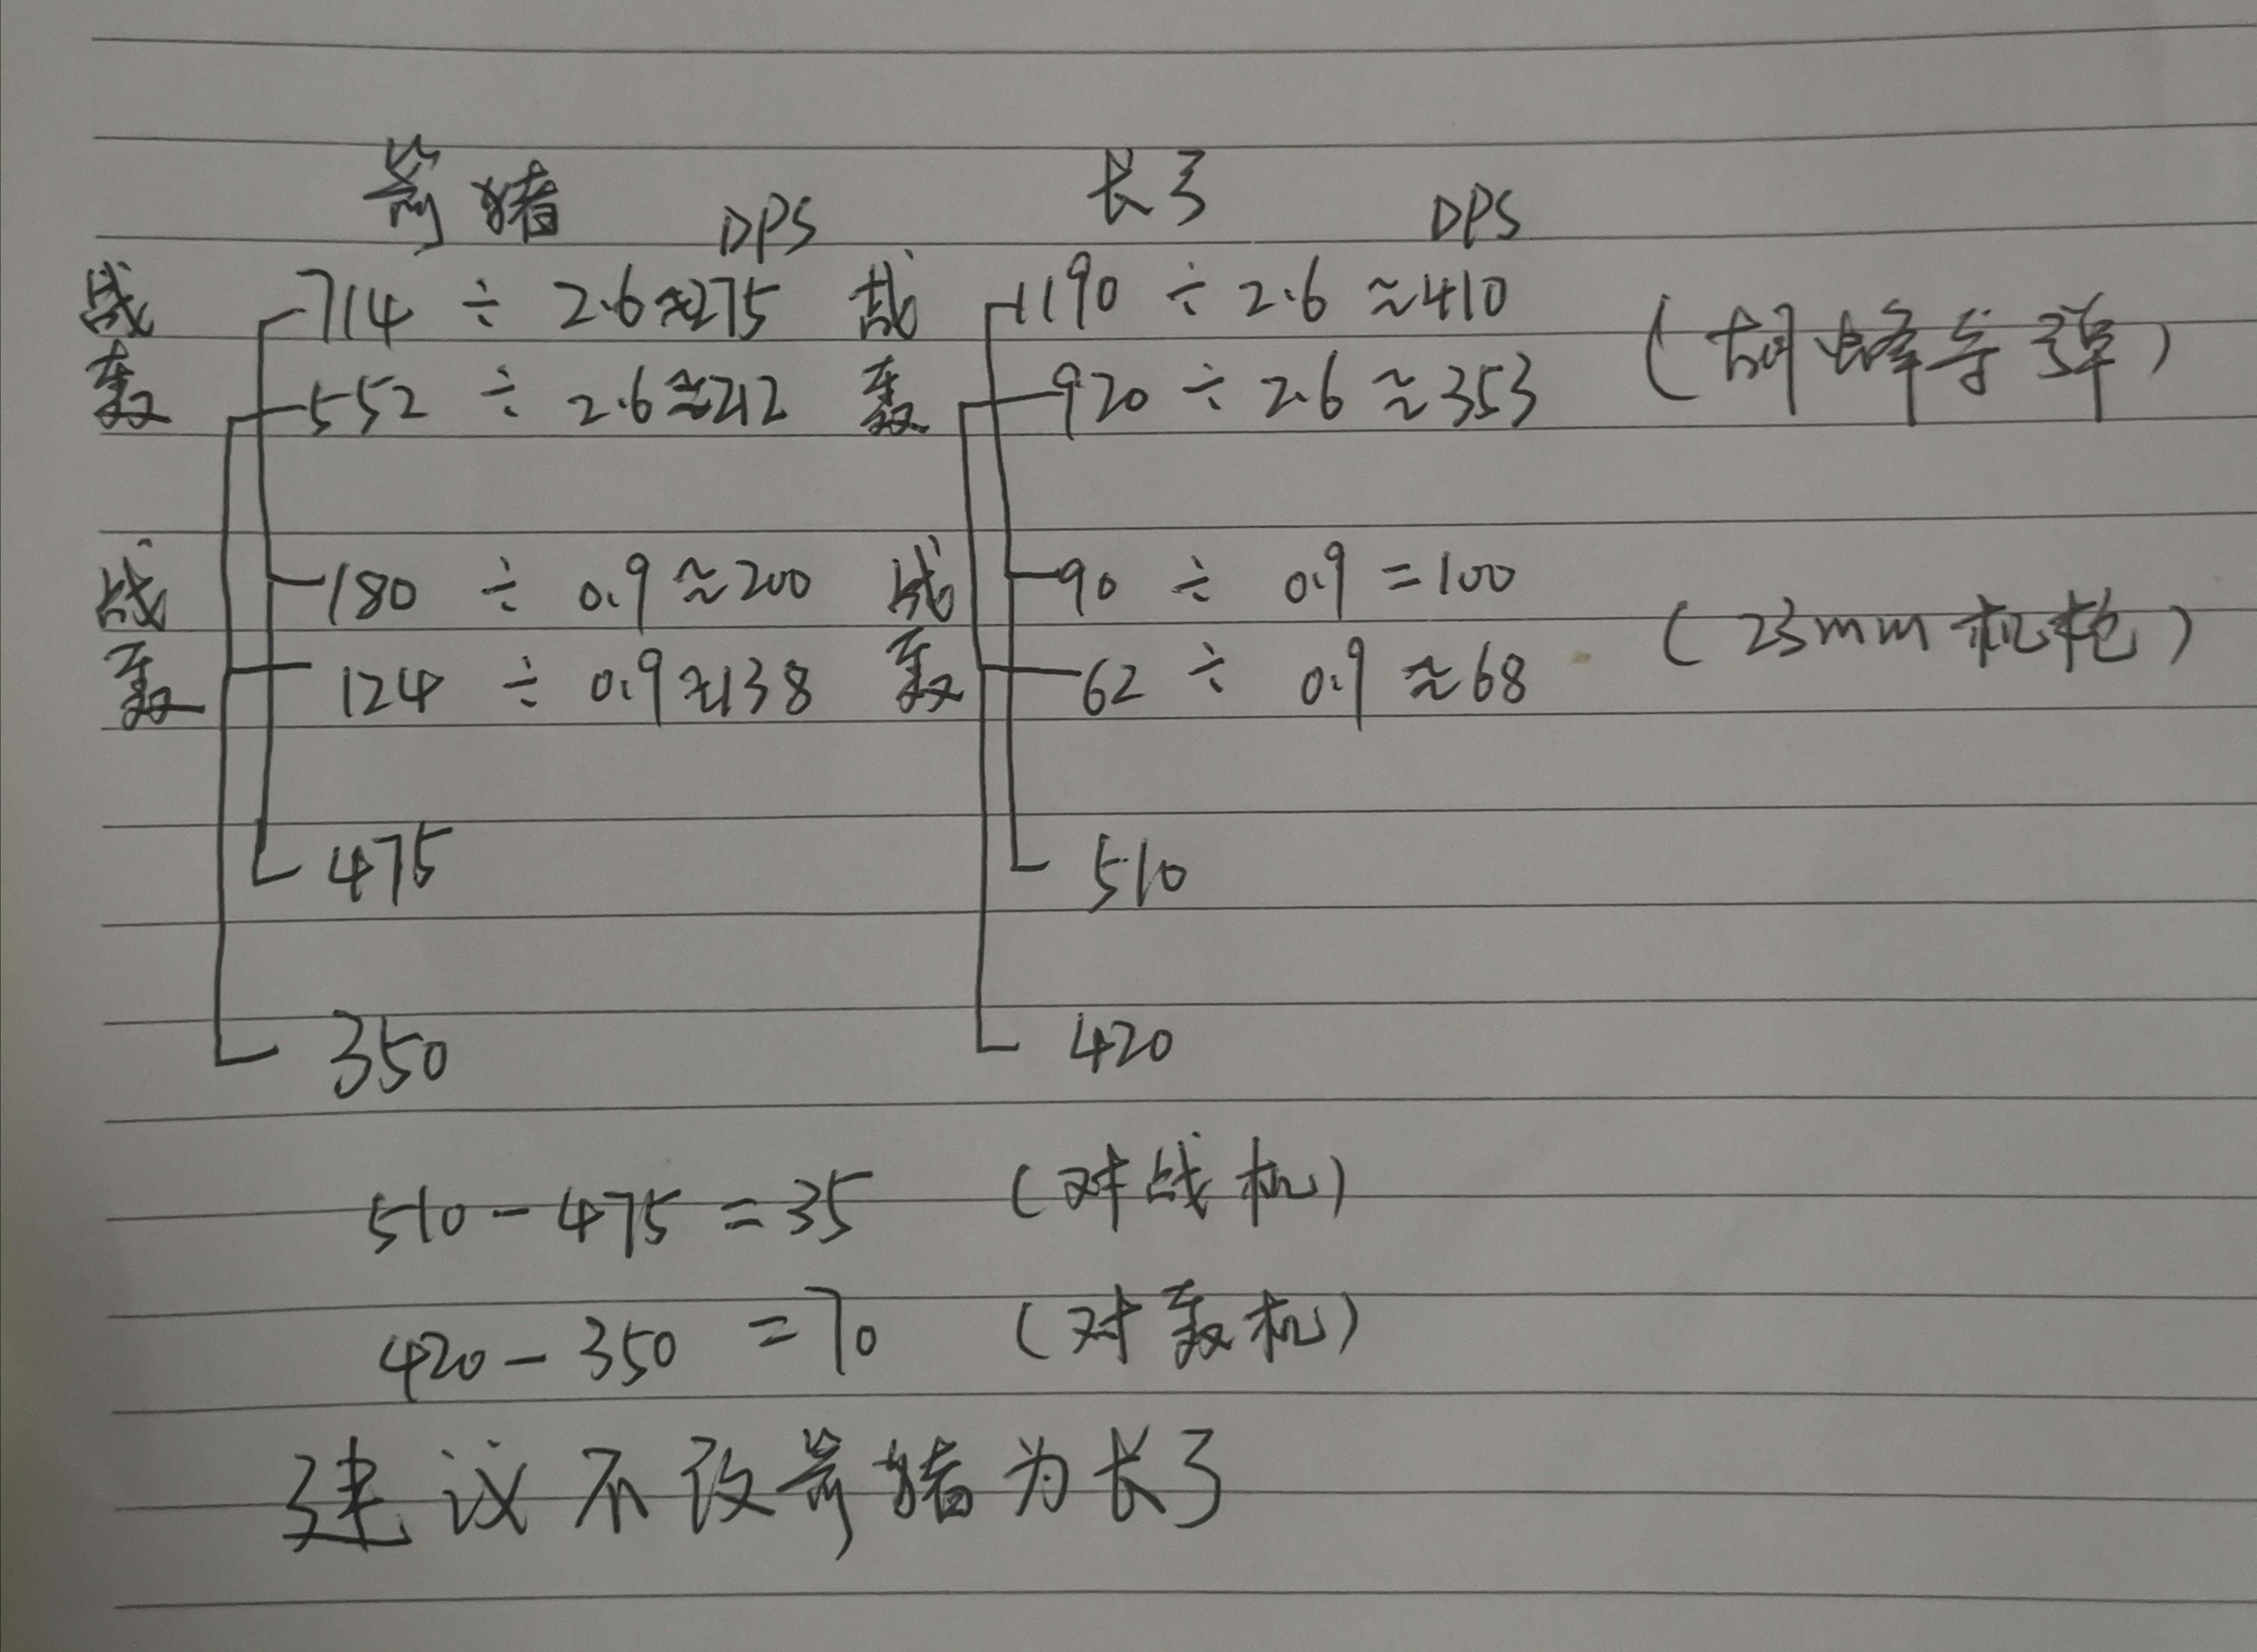 箭猪 DPS 长弓 DPS
战 714 ÷ 2.6 ≈275 战 1190 ÷ 2.6 ≈410
轰 552 ÷ 2.6 ≈212 轰 920 ÷ 2.6 ≈353 (胡蜂导弹)
战 180 ÷ 0.9 ≈200 战 90 ÷ 0.9 =100
轰 124 ÷ 0.9 ≈138 轰 62 ÷ 0.9 ≈68 (23mm机枪)
475 510
350 420
510-475=35 (对战机)
420-350=70 (对轰机)
建议不改箭猪为长弓